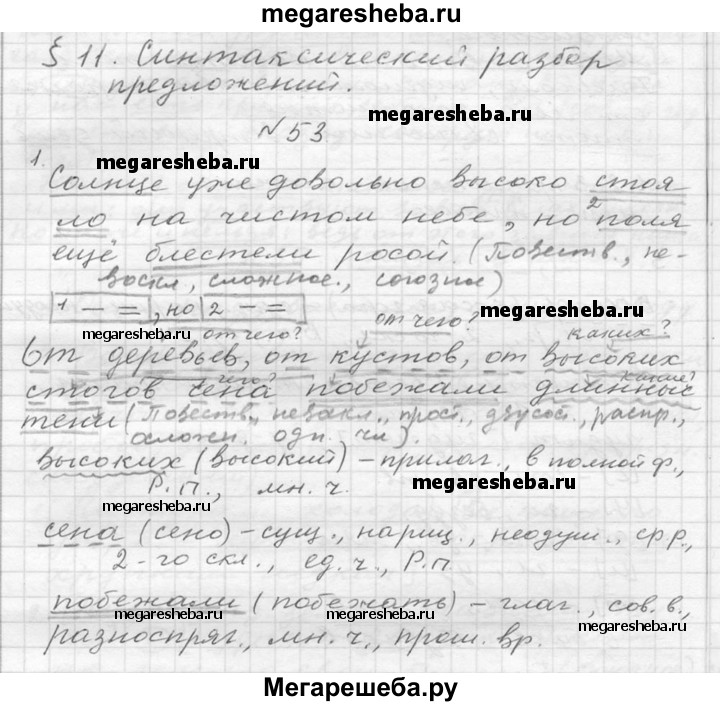 megaresheba.ru
§ 11. Синтаксический разбор
предложений.
megaresheba.ru
№ 53
1.
megaresheba.ru
Солнце уже довольно высоко стоя
ло на чистом небе, но 2 поля
ещё блестели росой. (Повеств., не-
воскл, сложное, союзное)
1 — = , но 2 — =
megaresheba.ru
от чего?
megaresheba.ru
от чего? каких?
От деревьев, от кустов, от высоких
чего? какие?
стогов сена побежали длинные
тени (Повеств., невоскл., прост., двусост., распр.,
осложн. одн. чл).
высоких (высокий) – прилаг., в полной ф.,
Р.п., мн. ч.
megaresheba.ru
megaresheba.ru
сена (сено) – сущ., нариц., неодуш., ср.р.,
2-го скл., ед. ч., Р.п.
побежали (побежать) – глаг., сов. в.,
megaresheba.ru
megaresheba.ru
разноспряг., мн. ч., прош. вр.
Мегарешеба.ру